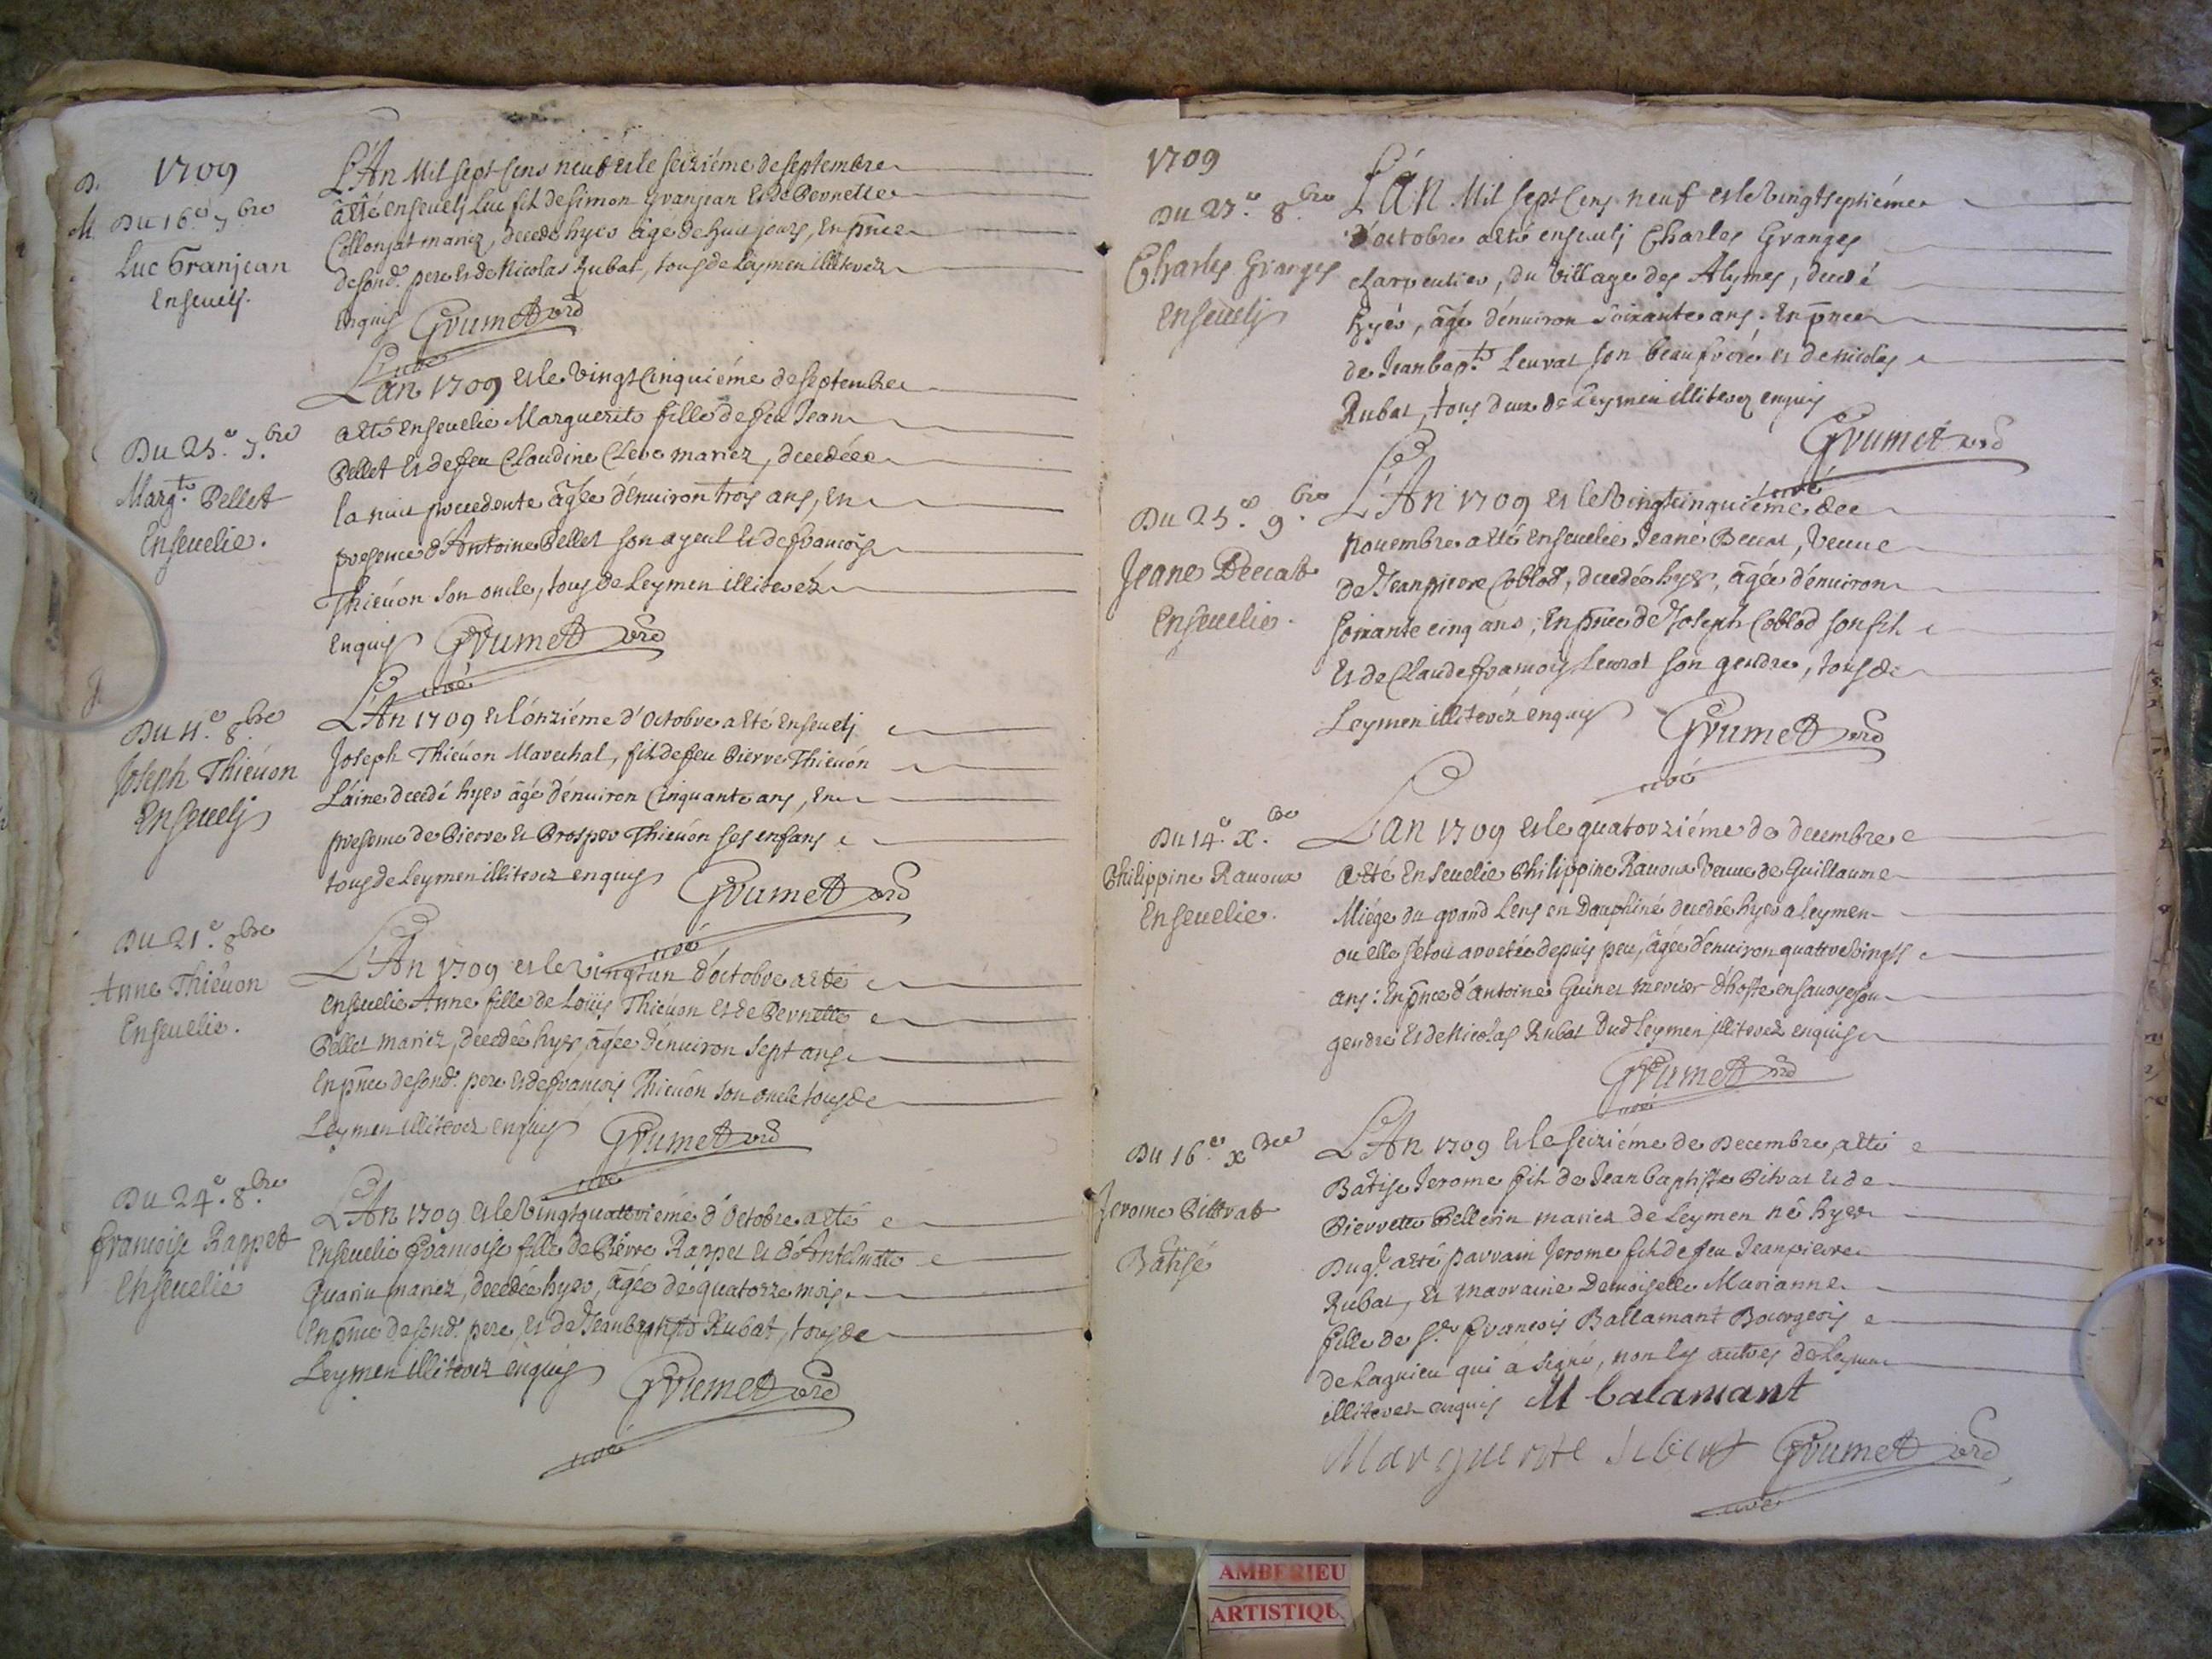 1709
Du 16.e 7.bre
Luc Granjean
Enseuelj.
L'An Mil sept Cens neuf et le seiziéme de septembre
a êté enseuelj Luc fil de simon Granjean et de Pernette
Collonjat mariez, decedé hyer âgé de huit jours, En pñce
de sond. pere et de Nicolas Rubat, tous de Leymen illiterez
enquis Grumet
curé
Du 25.e 7.bre
Marg.te Pellet
Enseuelie.
L'an 1709 et le vingt Cinquiéme de septembre
a eté enseuelie Marguerite fille de feu Jean
Pellet et de feu Claudine Clerc mariez, decedée
la nuit precedente âgée d'enuiron trois ans, en
presence d'Antoine Pellet son ayeul et de francois
Thieuon son oncle, tous de Leymen illiterez
enquis Grumet
curé
Du 11.e 8.bre
Joseph Thieuon
Enseuelj
L'An 1709 et l'onziéme d'Octobre a eté enseuelj
Joseph Thieuon Marechal, fil de feu Pierre Thieuon
L'ainé decedé hyer âgé d'enuiron Cinquante ans, en
presence de Pierre et Prosper Thieuon ses enfans
tous de Leymen illiterez enquis Grumet
curé
Du 21.e 8.bre
Anne Thieuon
Enseuelie.
L'An 1709 et le vingt un d'octobre a eté
enseuelie Anne fille de Loüis Thieuon et de Pernette
Pellet mariez, decedée hyer, âgée d'enuiron sept ans
en pñce de sond. pere et de francois Thieuon son oncle tous de
Leymen illiterez enquis Grumet
curé
Du 24.e 8.bre
francoise Rappet
Enseuelie
L'An 1709 et le vingt quatoriéme d'Octobre a eté
Enseuelie francoise fille de Pierre Rappet et d'Antelmatte
mariez, decedée hyer, âgée de quatorze mois
En pñce de sond. pere, et de Jean baptiste Rubat, tous de
Leymen illiterez enquis Grumet
curé
1709
Du 27.e 8.bre
Charles Granges
Enseuelj
L'an Mil sept Cens neuf et le vingt septiéme
d'octobre a eté enseuelj Charles Granges
charpentier, du village des Alymes, decedé
hyer, âgé d'enuiron soixante ans: En pñce
de Jean bap.te Leurat son beaufrere et de nicolas
Rubat, tous deux de Leymen illiterez enquis
Grumet
curé
Du 25.e 9.bre
Jeane Beccat
Enseuelie.
L'An 1709 et le vingt cinquiéme de
nouembre a eté enseuelie Jeane Beccat, veuue
de Jean pierre Coblod, decedée hyer, âgée d'enuiron
soixante cinq ans; en pñce de Joseph Coblod son fil
et de Claude francois Leurat son gendre, tous de
Leymen illiterez enquis Grumet
curé
Du 14.e X.bre
Philippine Rauoux
Enseuelie.
L'an 1709 et le quatorziéme de decembre
a eté enseuelie Philippine Rauoux veuue de Guillaume
Miége du grand Lens en Dauphiné decedée hyer a leymen
ou elle s'etoit arretée depuis peu, âgée d'enuiron quattre vingts
ans: En pñce d'antoine Guinet mercier d'hoste en sauoye son
gendre et de Nicolas Rubat dud. Leymen illiterez enquis
Grumet
curé
Du 16.e X.bre
Jerome Bittvat
Batisé
L'An 1709 et le seiziéme de Decembre, a eté
Batisé Jerome fil de Jean baptiste Bitvat et de
Pierrette Pellerin mariez de Leymen né hyer
Duql. a eté parrain Jerome fil de feu Jean pierre
Rubat, et marraine Demoiselle Marianne
fille de S.r francois Ballamant Bourgeois
de Lagnieu qui a signé, non les autres de Leymen
illiterez enquis M balamant
Marguerite Grumet
curé
AMBERIEU
ARTISTIQU